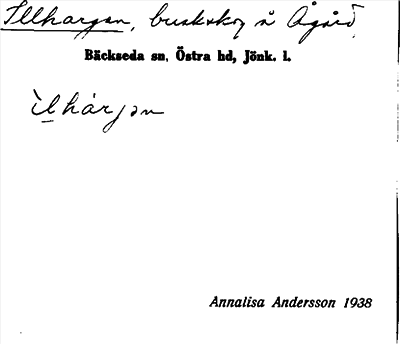 Illhargan, buskskog å Ågård,
Bäckseda sn, Östra hd, Jönk. l.
ìlhárjan
Annalisa Andersson 1938